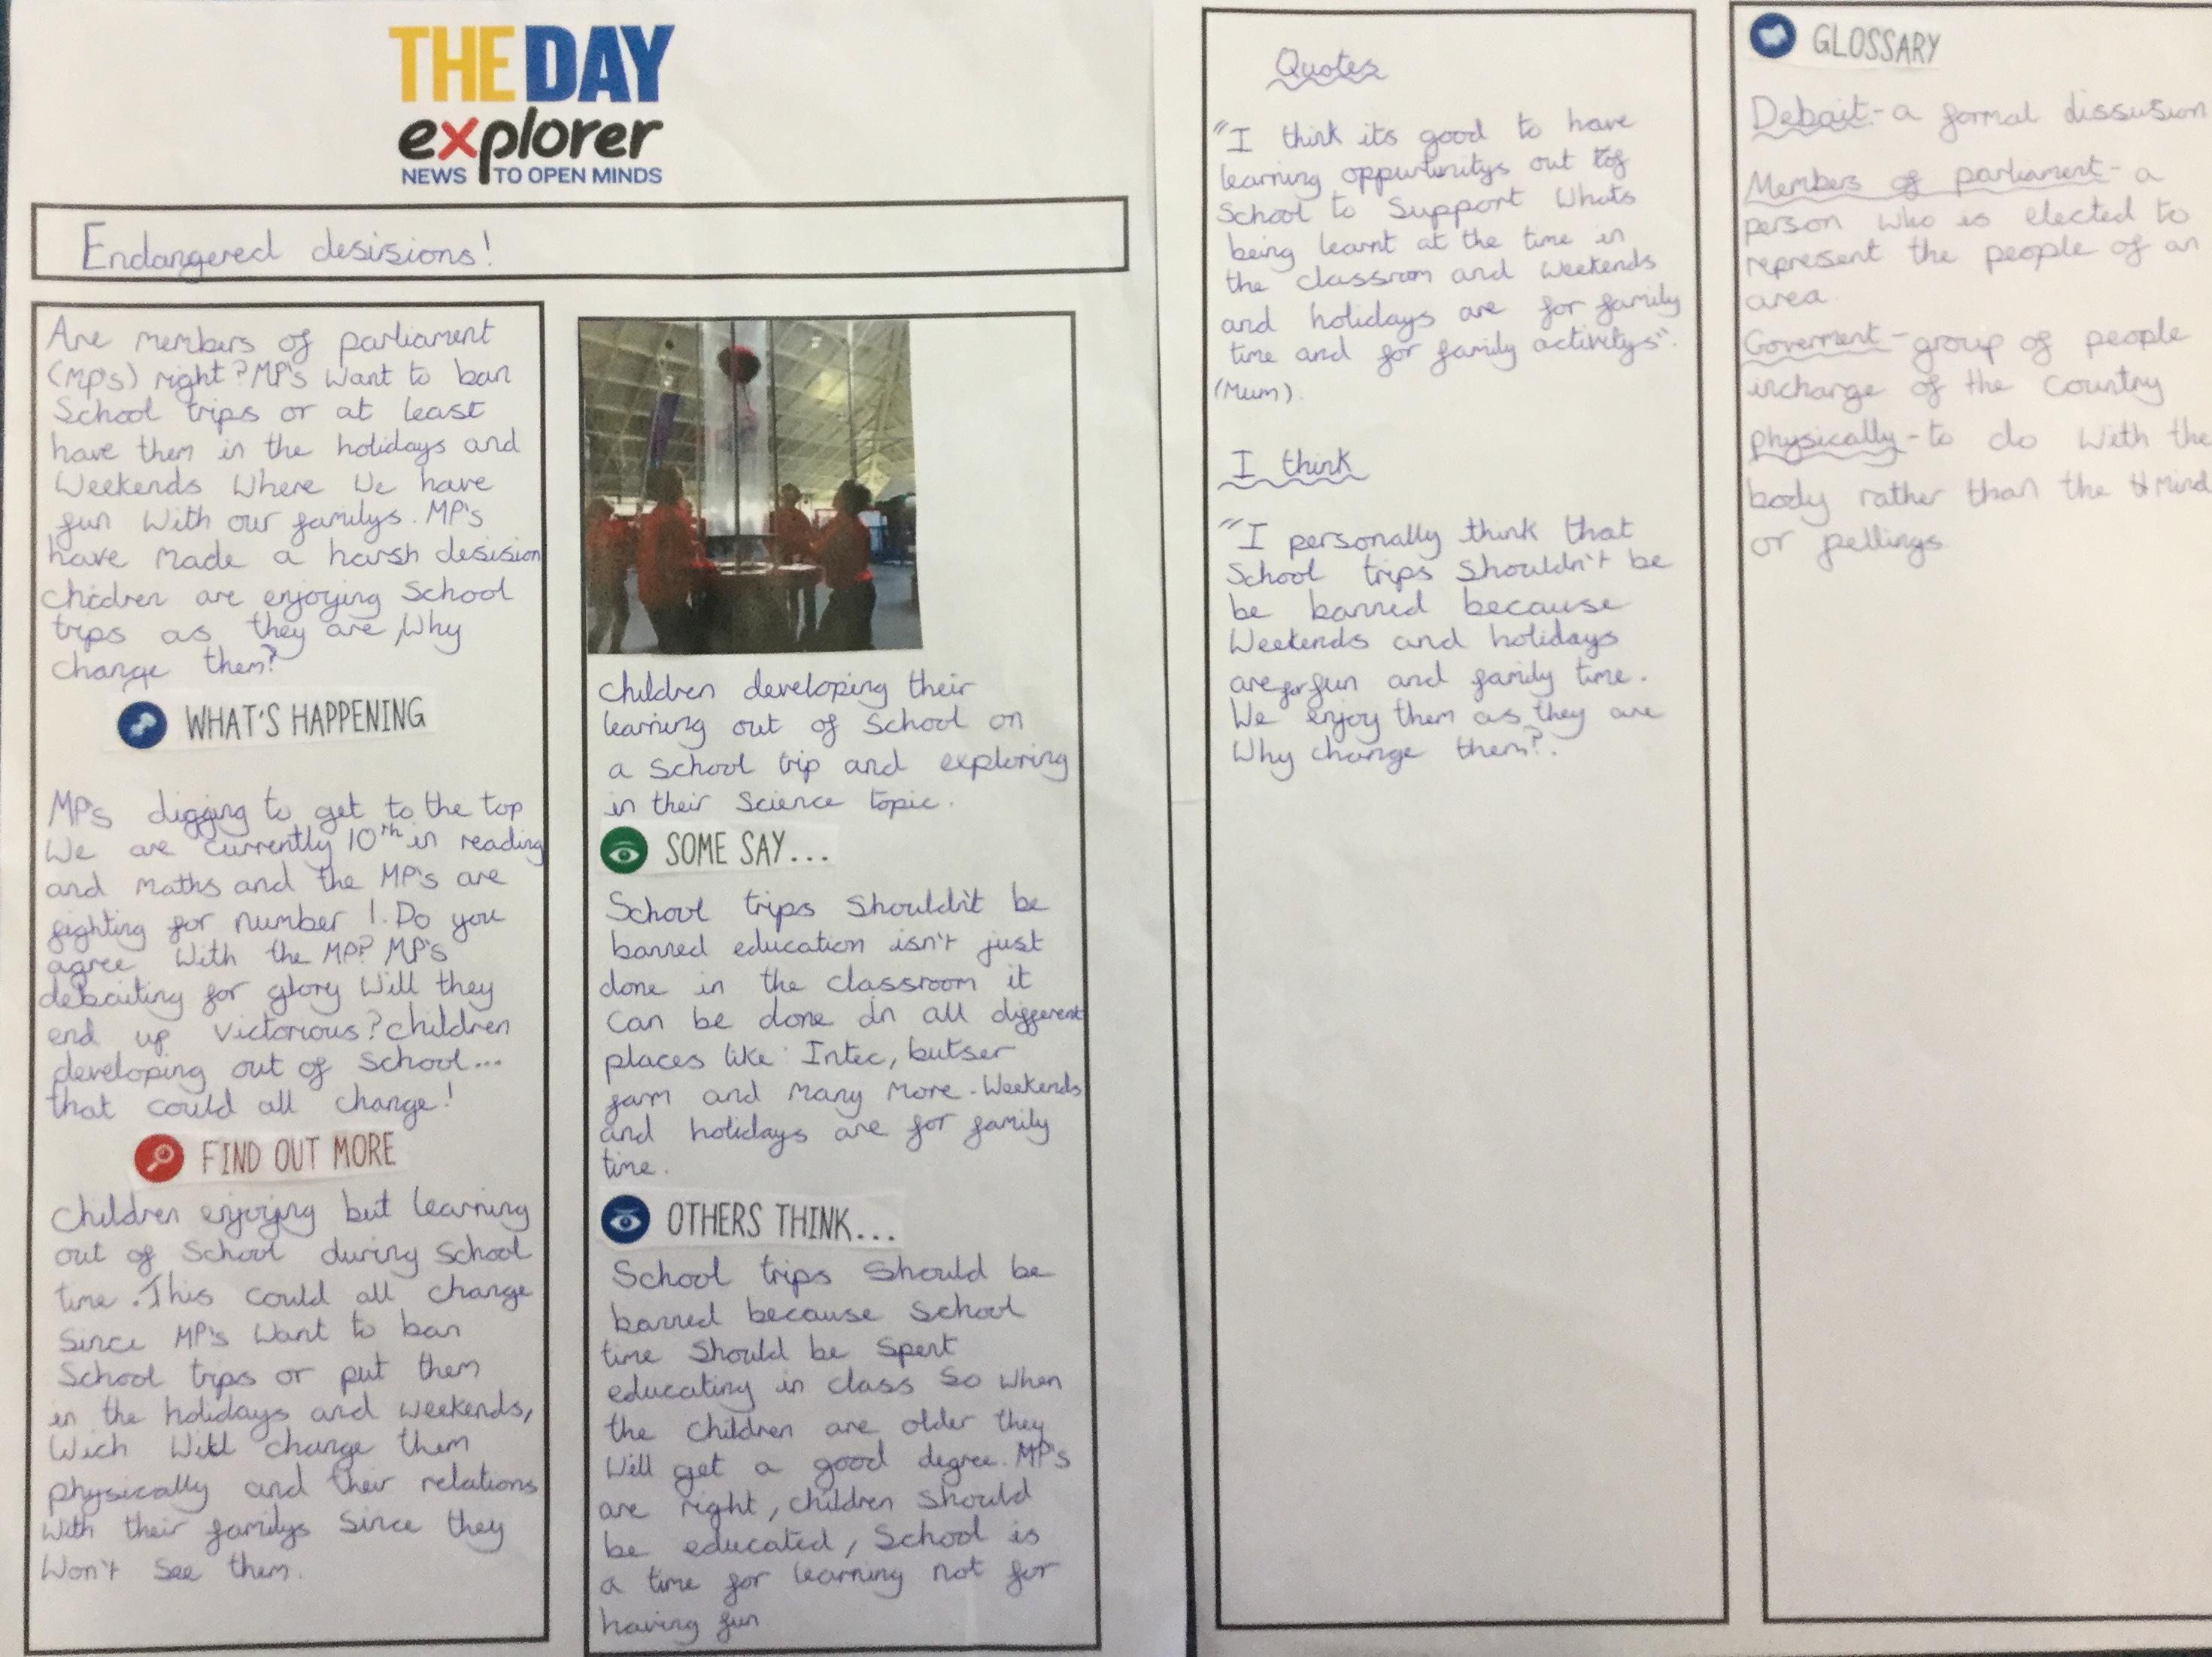 THE DAY
explorer
NEWS TO OPEN MINDS
Endangered desisions!
Are members of parliament
(MP's) right? MP's want to ban
School trips or at least
have them in the holidays and
Weekends Where We have
fun With our familys. MP's
have made a harsh desision
children are enjoying School
trips as they are, Why
change them?
WHAT'S HAPPENING
MP's digging to get to the top
We are currently 10th in reading
and maths and the MP's are
fighting for number 1. Do you
agree With the MP? MP's
debaiting for glory Will they
end up victorious? children
developing out of School...
that could all change!
FIND OUT MORE
Children enjoying but learning
out of School during School
time. This could all change
Since MP's Want to ban
School trips or put them
in the holidays and weekends,
Wich Will change them
physically and their relations
With their familys Since they
Won't See them.
children developing their
learning out of School on
a School trip and exploring
in their Science topic.
SOME SAY...
School trips Shouldn't be
banned education isn't just
done in the classroom it
Can be done in all different
places like Intec, butser
farm and many more. Weekends
and holidays are for family
time.
OTHERS THINK...
School trips Should be
banned because School
time Should be Spent
educating in class So When
the children are older they
Will get a good degree. MP's
are right, children Should
be educated, School is
a time for learning not for
having fun
Quotes
"I think its good to have
learning oppurtunitys out of
School to Support Whats
being learnt at the time in
the classroom and Weekends
and holidays are for family
time and for family activitys".
(Mum).
I think
"I personally think that
School trips Shouldn't be
be banned because
Weekends and holidays
are for fun and family time.
We enjoy them as they are
Why change them?.
GLOSSARY
Debait - a formal dissusion
Members of parliament - a
person Who is elected to
represent the people of an
area.
Goverment - group of people
incharge of the Country
physically - to do With the
body rather than the Mind
or fellings